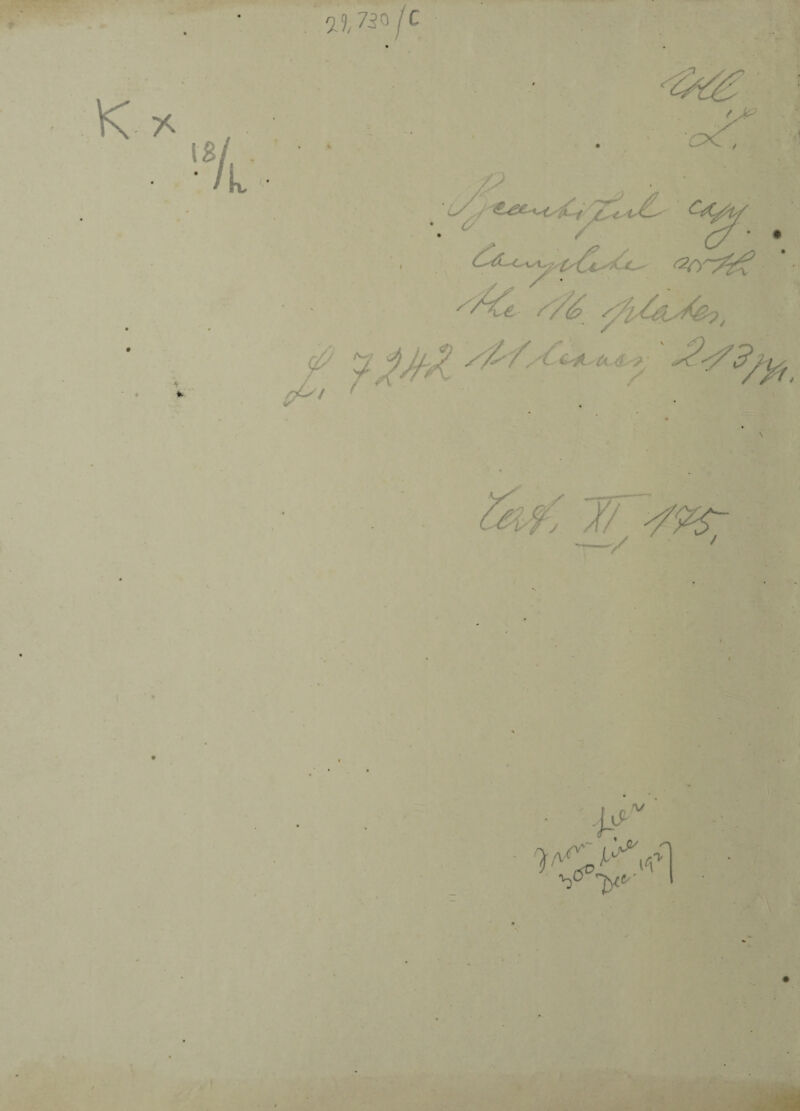 29,730/C
K x
18/h
coll
L.
Beautiful copy.
Complete with
the 16 plates,
L. 7242 11 leaves, 213 pp.
Cat. XI, 175,
From Lier
300 lire
Dec. 1927